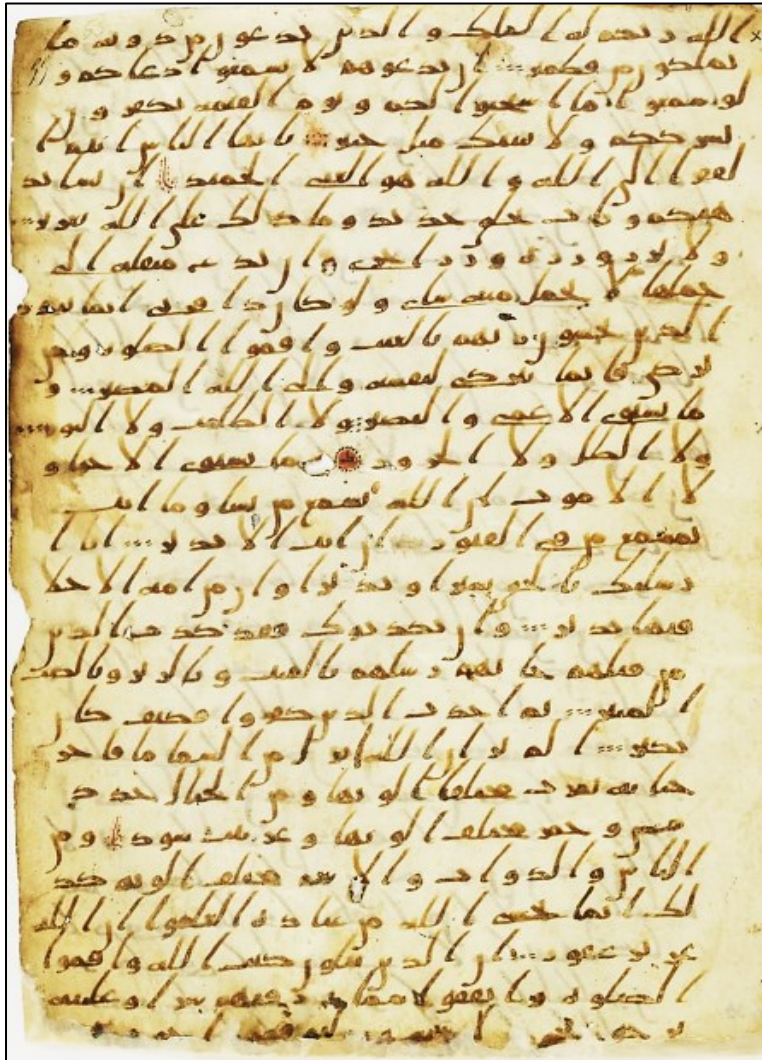 الله ربكم له الملك والذين تدعون من دونه ما
يملكون من قطمير ان تدعوهم لا يسمعوا دعاكم و
لو سمعوا ما استجبوا لكم ويوم القيمة يكفرون
بشرككم ولا ينبئك مثل خبير يايها الناس انتم ا
لفقرا الى الله والله هو الغني الحميد ان يشا يذ
هبكم ويات بخلق جديد وما ذلك على الله بعزيز
ولا تزر وزرة وزر اخرى وان تدع مثقلة الى
حملها لا يحمل منه شي ولو كان ذا قربى انما تنذر
الذين يخشون ربهم بالغيب واقموا الصلوة ومن
تزكى فانما يتزكى لنفسه والى الله المصير و
ما يستوي الاعمى والبصير ولا الظلمت ولا النور
ولا الظل ولا الحرور وما يستوي الاحيا و
لا الاموت ان الله يسمع من يشا وما انت
بمسمع من في القبور ان انت الا نذير انا ا
رسلنك بالحق بشيرا ونذيرا وان من امة الا خلا
فيها نذير وان يكذبوك فقد كذب الذين
من قبلهم جاتهم رسلهم بالبينت وبالزبر وبالكتب
المنير ثم اخذت الذين كفروا فكيف كان
نكير الم تر ان الله انزل من السما ما فاخر
جنا به ثمرت مختلفا الونها ومن الجبال جدد
بيض وحمر مختلف الونها وغرابيب سود ومن
الناس والدواب والانعم مختلف الونه كذ
لك انما يخشى الله من عباده العلموا ان الله
عزيز غفور ان الذين يتلون كتب الله واقموا
الصلوة وانفقوا مما رزقنهم سرا وعلنية